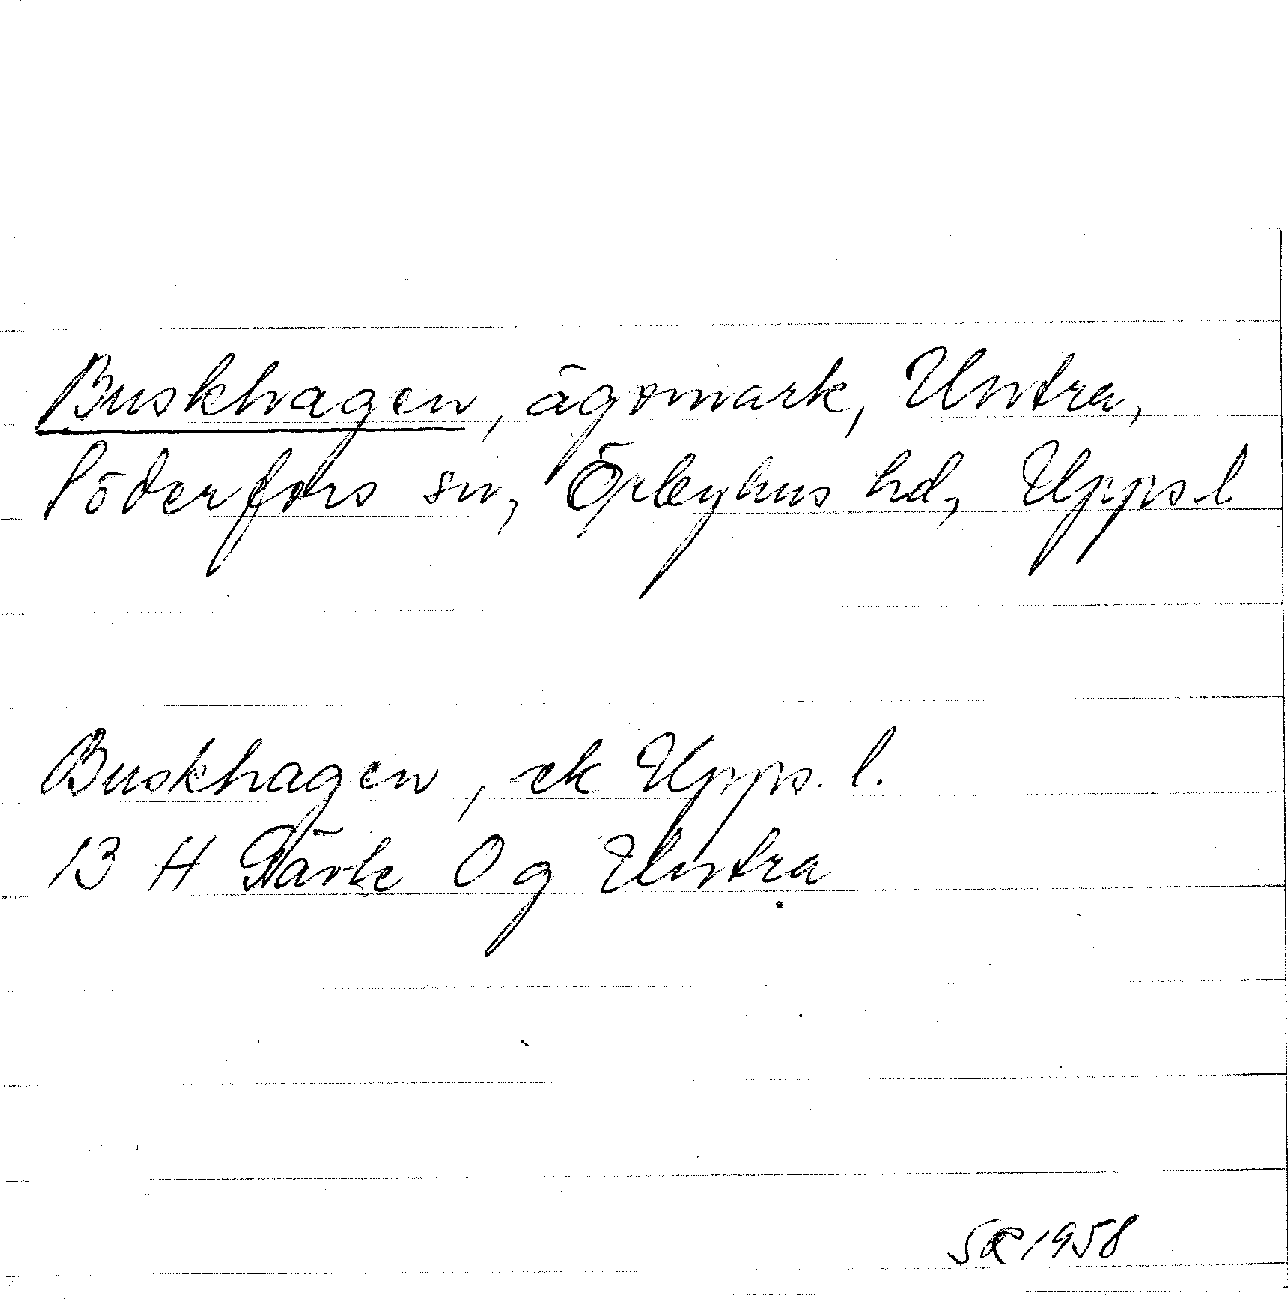 Buskhagen, ägomark, Untra,
Söderfors sn, Örbyhus hd, Upps.l
Buskhagen, ek Upps. l.
13 H Gävle O g Untra
1958